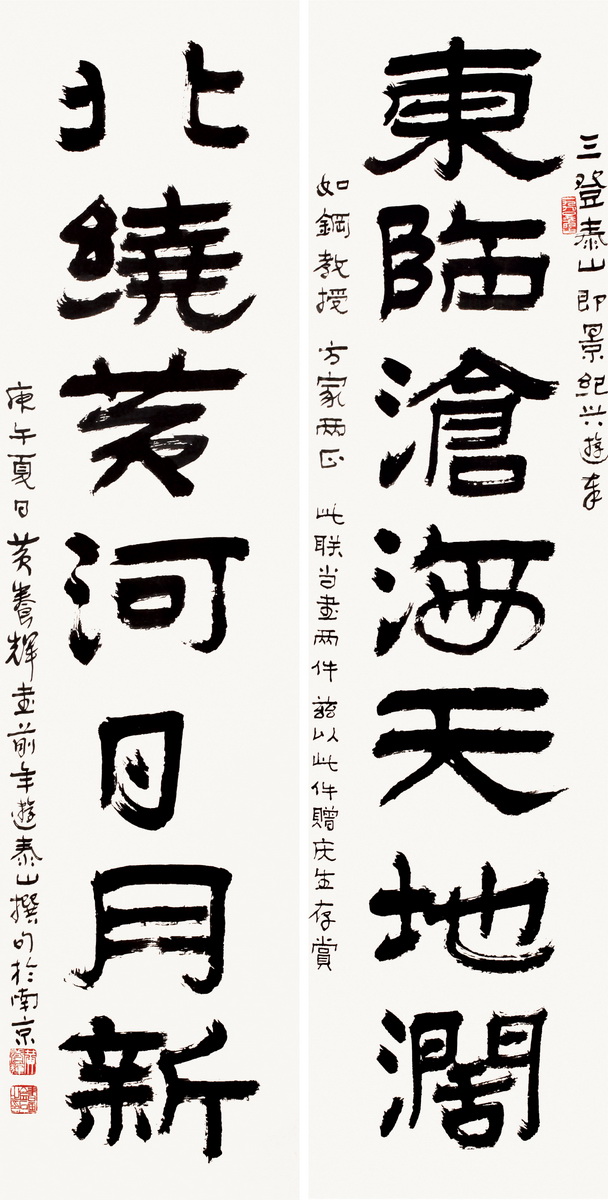 三登泰山即景纪兴遊奉
東臨滄海天地濶
如鋼教授 方家两正 此联当書两件 兹以此件贈庆生存賞
北繞黄河日月新
庚午夏日黄養輝書前年遊泰山撰句於南京